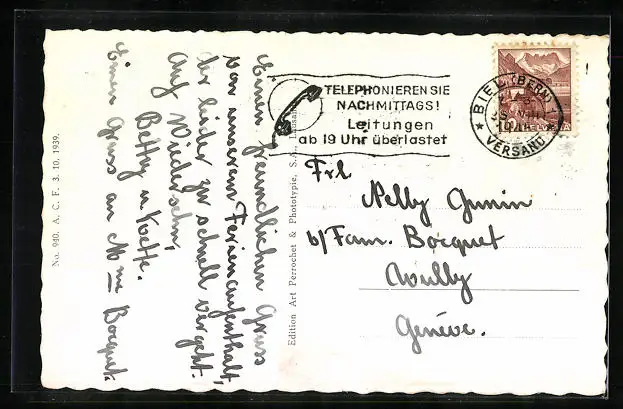 Einen freundlichen Gruss
von unserem Ferienaufenthalt,
der leider zu schnell vergeht.
Auf Wiedersehn,
Betty u.
Einen Gruss an Mme Bocquet.
No. 940. A. C. F. 3. 10. 1939.
Edition Art Perrochet & Phototypie, S.A., Lausanne
TELEPHONIEREN SIE
NACHMITTAGS!
Leitungen
ab 19 Uhr überlastet
BIEL (BERN) 1
VERSAND
HELVETIA
Frl
Nelly Gunin
b/Fam. Bocquet
Wully
Genève.